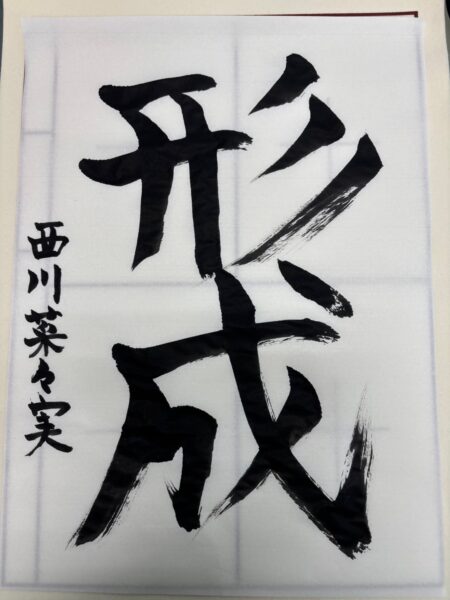 形成
西川菜々実